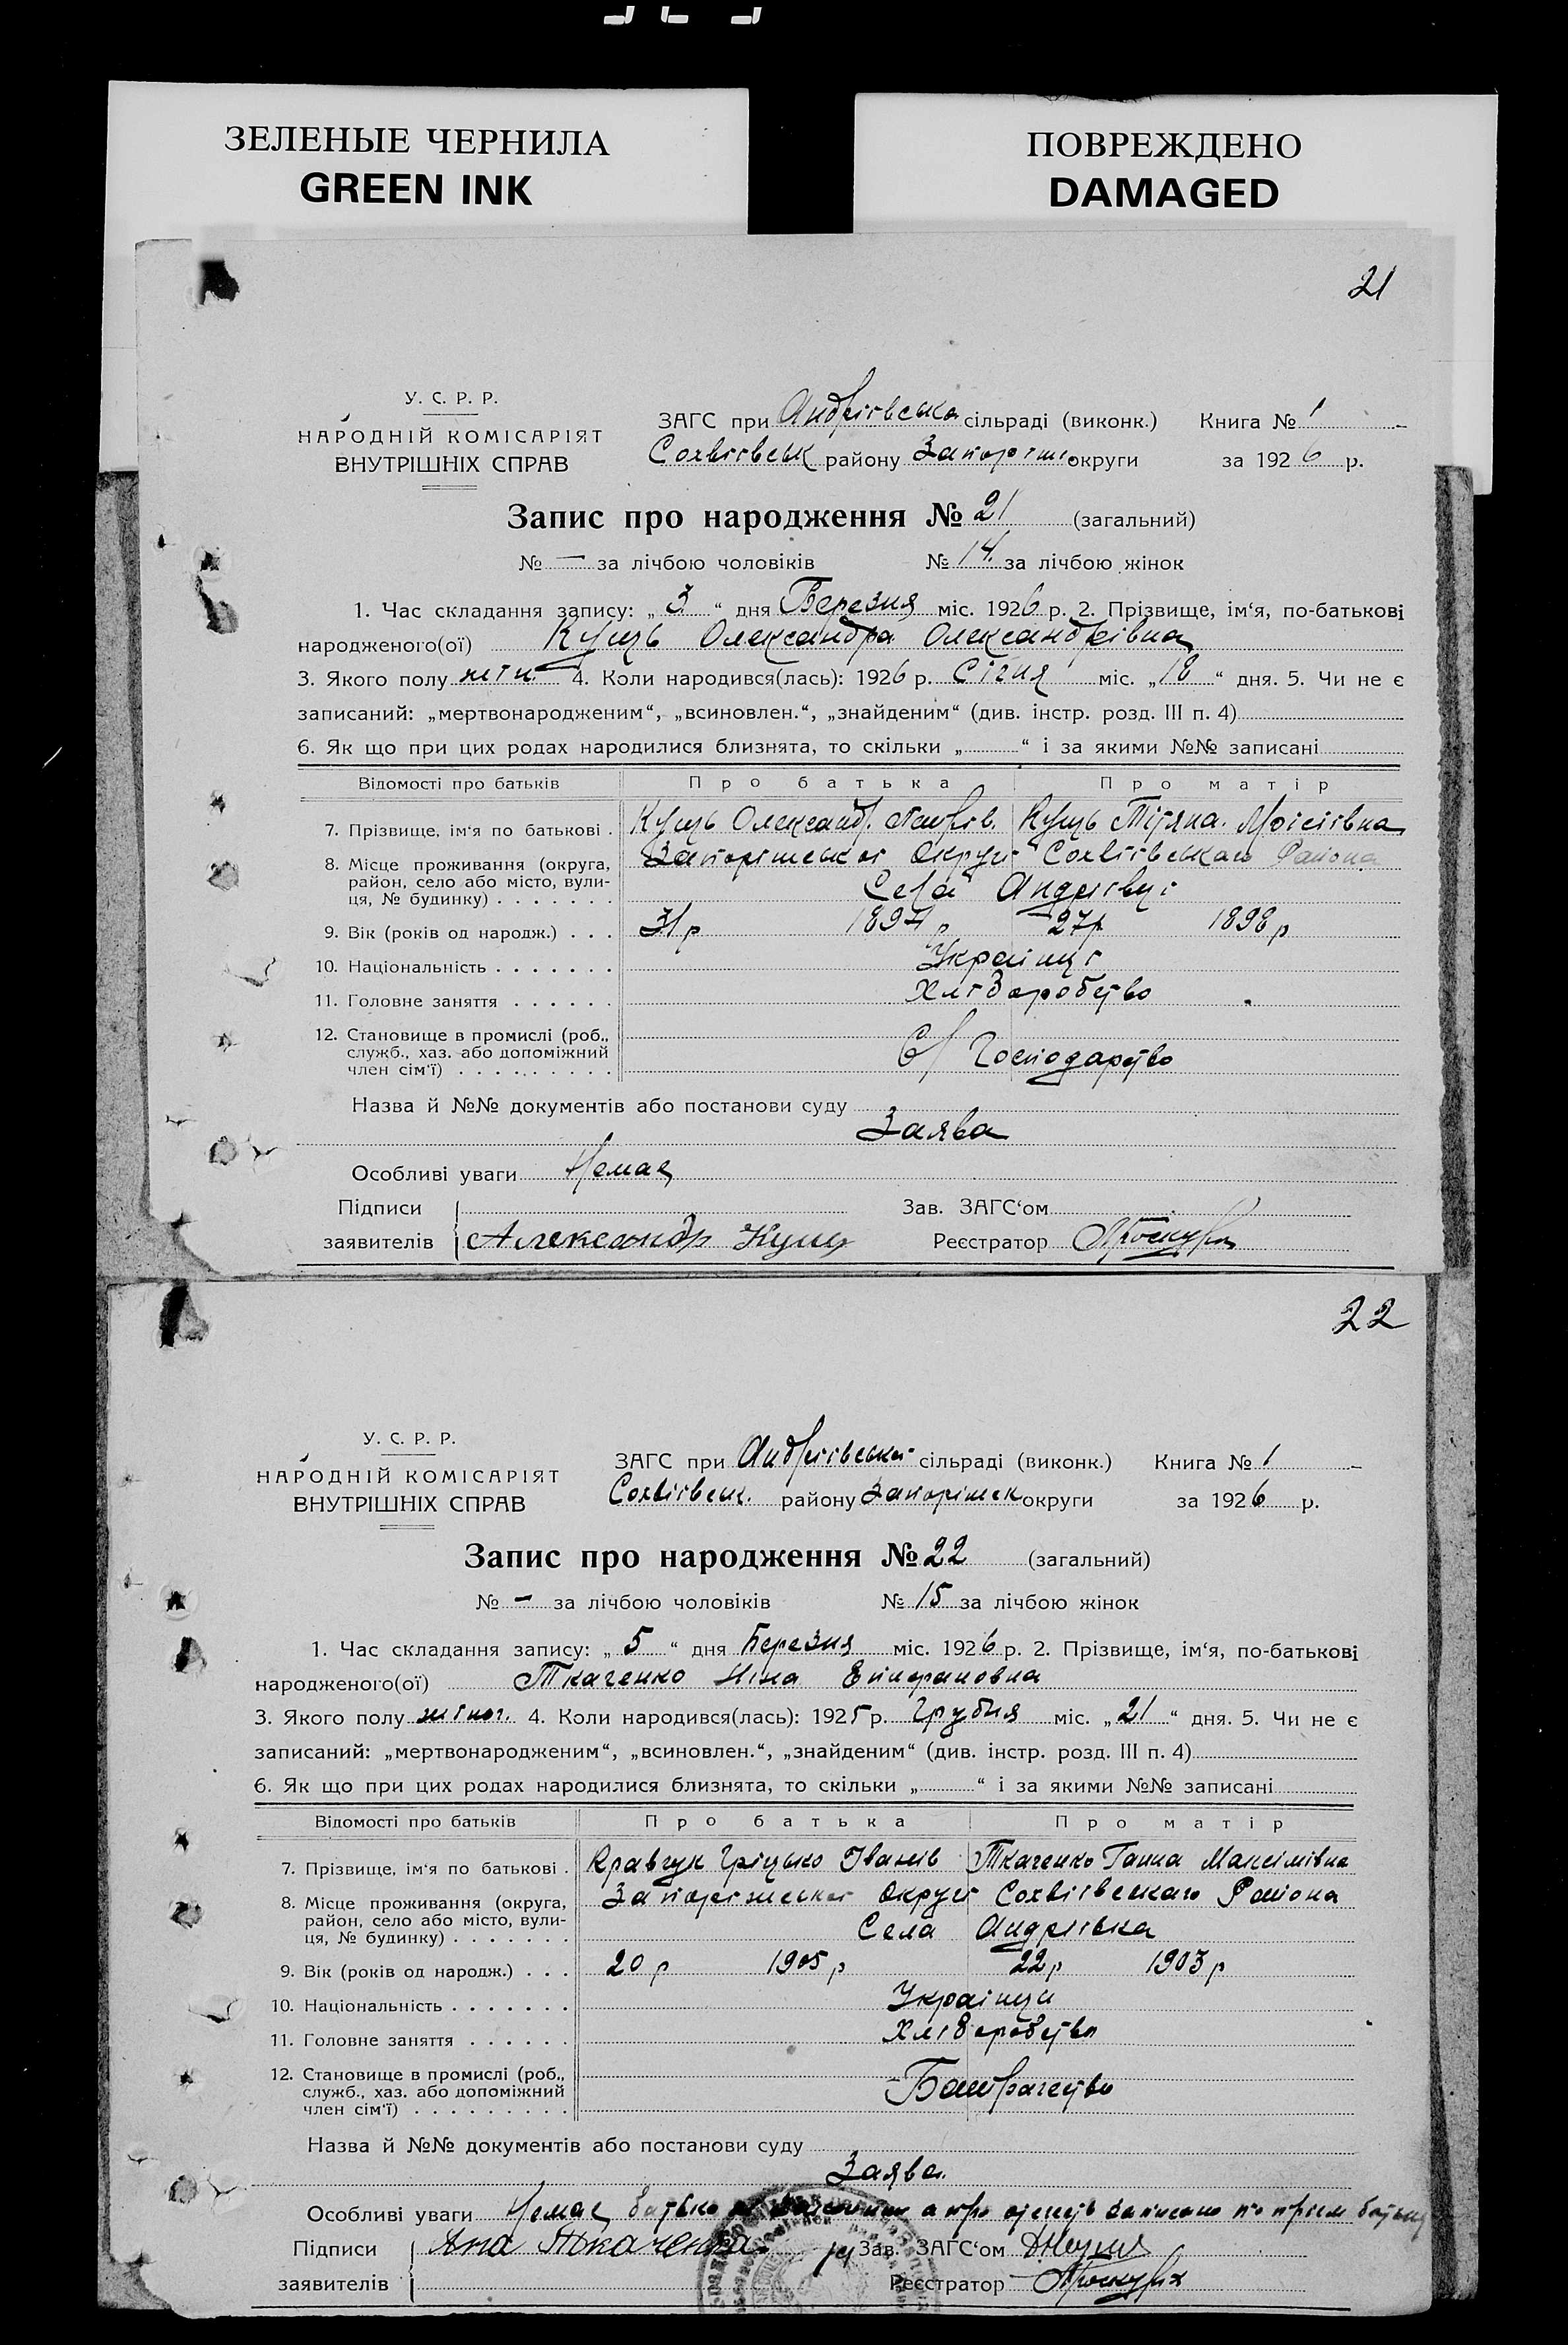 ЗЕЛЕНЫЕ ЧЕРНИЛА
GREEN INK
ПОВРЕЖДЕНО
DAMAGED
21
У. С. Р. Р.
НАРОДНІЙ КОМІСАРІЯТ
ВНУТРІШНІХ СПРАВ
ЗАГС при Андріївська сільраді (виконк.) Книга № 1
Софіївськ району Запоріш. округи за 1926 р.
Запис про народження № 21 (загальний)
№ — за лічбою чоловіків № 14 за лічбою жінок
1. Час складання запису: „ 3 “ дня Березня міс. 1926 р. 2. Прізвище, ім‘я, по-батькові
народженого(ої) Куць Олександра Олександрівна
3. Якого полу жін. 4. Коли народився(лась): 1926 р. Січня міс. „18“ дня. 5. Чи не є
записаний: „мертвонародженим“, „всиновлен.“, „знайденим“ (див. інстр. розд. III п. 4)
6. Як що при цих родах народилися близнята, то скільки „ “ і за якими №№ записані
Відомості про батьків Про батька Про матір
7. Прізвище, ім‘я по батькові . Куць Олександ. Куць Тітяна Моісіівна
8. Місце проживання (округа, Запорішськоі Округі Софіівського Района
район, село або місто, вули-
ця, № будинку) . . . . . . . Села Андріівці
9. Вік (років од народж.) . . . 31 р 1894 р 27 р 1898 р
10. Національність . . . . . . . Украінці
11. Головне заняття . . . . . . Хліборобство
12. Становище в промислі (роб.,
служб., хаз. або допоміжний С/Господарство
член сім‘ї) . . . . . . . . .
Назва й №№ документів або постанови суду
Заява
Особливі уваги Немає
Підписи Зав. ЗАГС‘ом
заявителів Александр Куць Реєстратор
22
У. С. Р. Р.
НАРОДНІЙ КОМІСАРІЯТ
ВНУТРІШНІХ СПРАВ
ЗАГС при Андріівській сільраді (виконк.) Книга № 1
Софіівськ. району Запоріжськ округи за 1926 р.
Запис про народження № 22 (загальний)
№ - за лічбою чоловіків № 15 за лічбою жінок
1. Час складання запису: „ 5 “ дня Березня міс. 1926 р. 2. Прізвище, ім‘я, по-батькові
народженого(ої) Ткаченко Ніна Епифановна
3. Якого полу жіноч. 4. Коли народився(лась): 1925 р. Грудня міс. „21“ дня. 5. Чи не є
записаний: „мертвонародженим“, „всиновлен.“, „знайденим“ (див. інстр. розд. III п. 4)
6. Як що при цих родах народилися близнята, то скільки „ “ і за якими №№ записані
Відомості про батьків Про батька Про матір
7. Прізвище, ім‘я по батькові . Кравчук Гріцько Іванів Ткаченко Ганна Максімівна
8. Місце проживання (округа, Запоріжськоі Округі Софіівського Района
район, село або місто, вули-
ця, № будинку) . . . . . . . Села Андріівка
9. Вік (років од народж.) . . . 20 р 1905 р 22 р 1903 р
10. Національність . . . . . . . Украінци
11. Головне заняття . . . . . . Хліборобство
12. Становище в промислі (роб.,
служб., хаз. або допоміжний Батрачество
член сім‘ї) . . . . . . . . .
Назва й №№ документів або постанови суду
Заява.
Особливі уваги Немає батько а про записано
Підписи Ана Ткаченко Зав. ЗАГС‘ом
заявителів Реєстратор